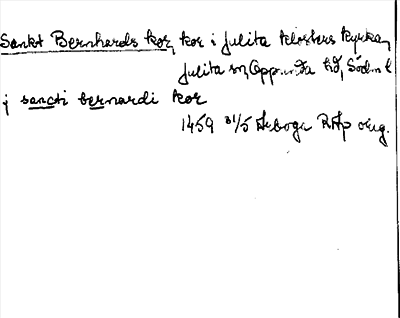 Sankt Bernhards kor, kor i Julita klosters kyrka,
Julita sn, Opp.unda hd, Södml
j sancti bernardi kor
1459 31/5 Arboga RAp orig.